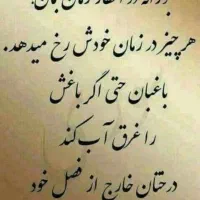 هر چیز در زمان خودش رخ میدهد.
باغبان حتی اگر باغش
را غرق آب کند
درختان خارج از فصل خود